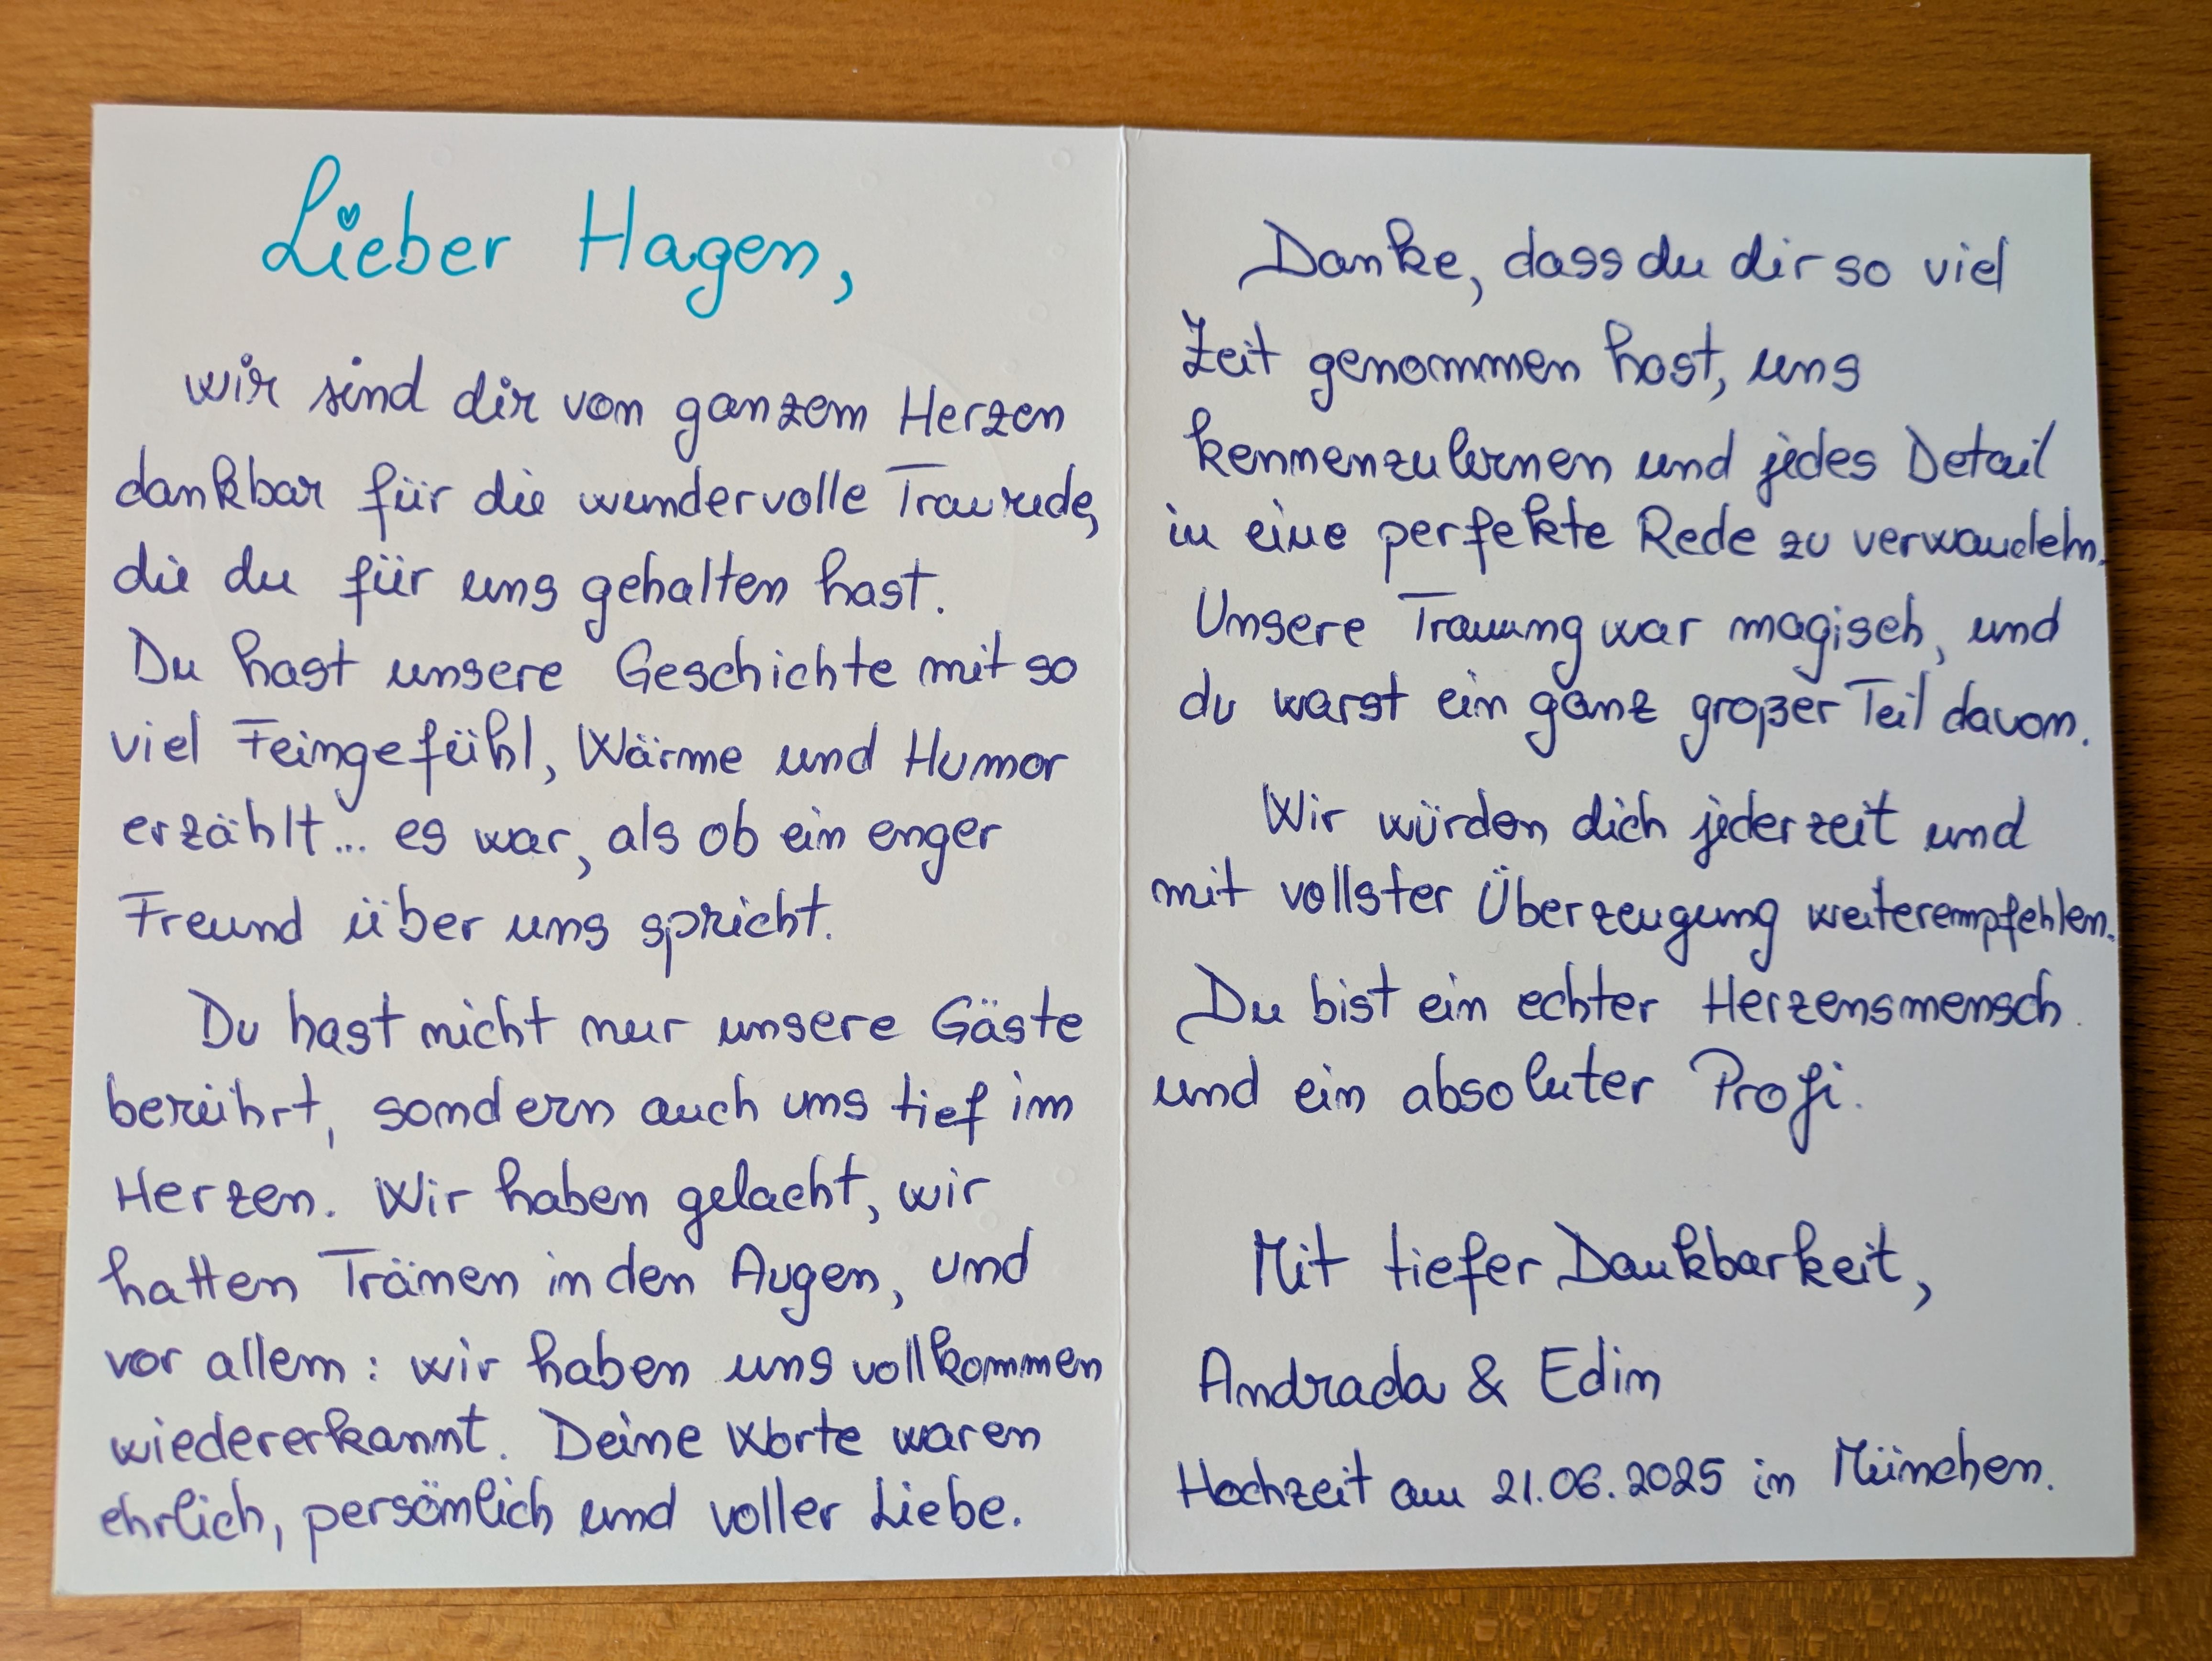 Lieber Hagen,
wir sind dir von ganzem Herzen
dankbar für die wundervolle Traurede,
die du für uns gehalten hast.
Du hast unsere Geschichte mit so
viel Feingefühl, Wärme und Humor
erzählt... es war, als ob ein enger
Freund über uns spricht.
Du hast nicht nur unsere Gäste
berührt, sondern auch uns tief im
Herzen. Wir haben gelacht, wir
hatten Tränen in den Augen, und
vor allem: wir haben uns vollkommen
wiedererkannt. Deine Worte waren
ehrlich, persönlich und voller Liebe.
Danke, dass du dir so viel
Zeit genommen hast, uns
kennenzulernen und jedes Detail
in eine perfekte Rede zu verwandeln.
Unsere Trauung war magisch, und
du warst ein ganz großer Teil davon.
Wir würden dich jederzeit und
mit vollster Überzeugung weiterempfehlen.
Du bist ein echter Herzensmensch
und ein absoluter Profi.
Mit tiefer Dankbarkeit,
Andrada & Edin
Hochzeit am 21.06.2025 in München.